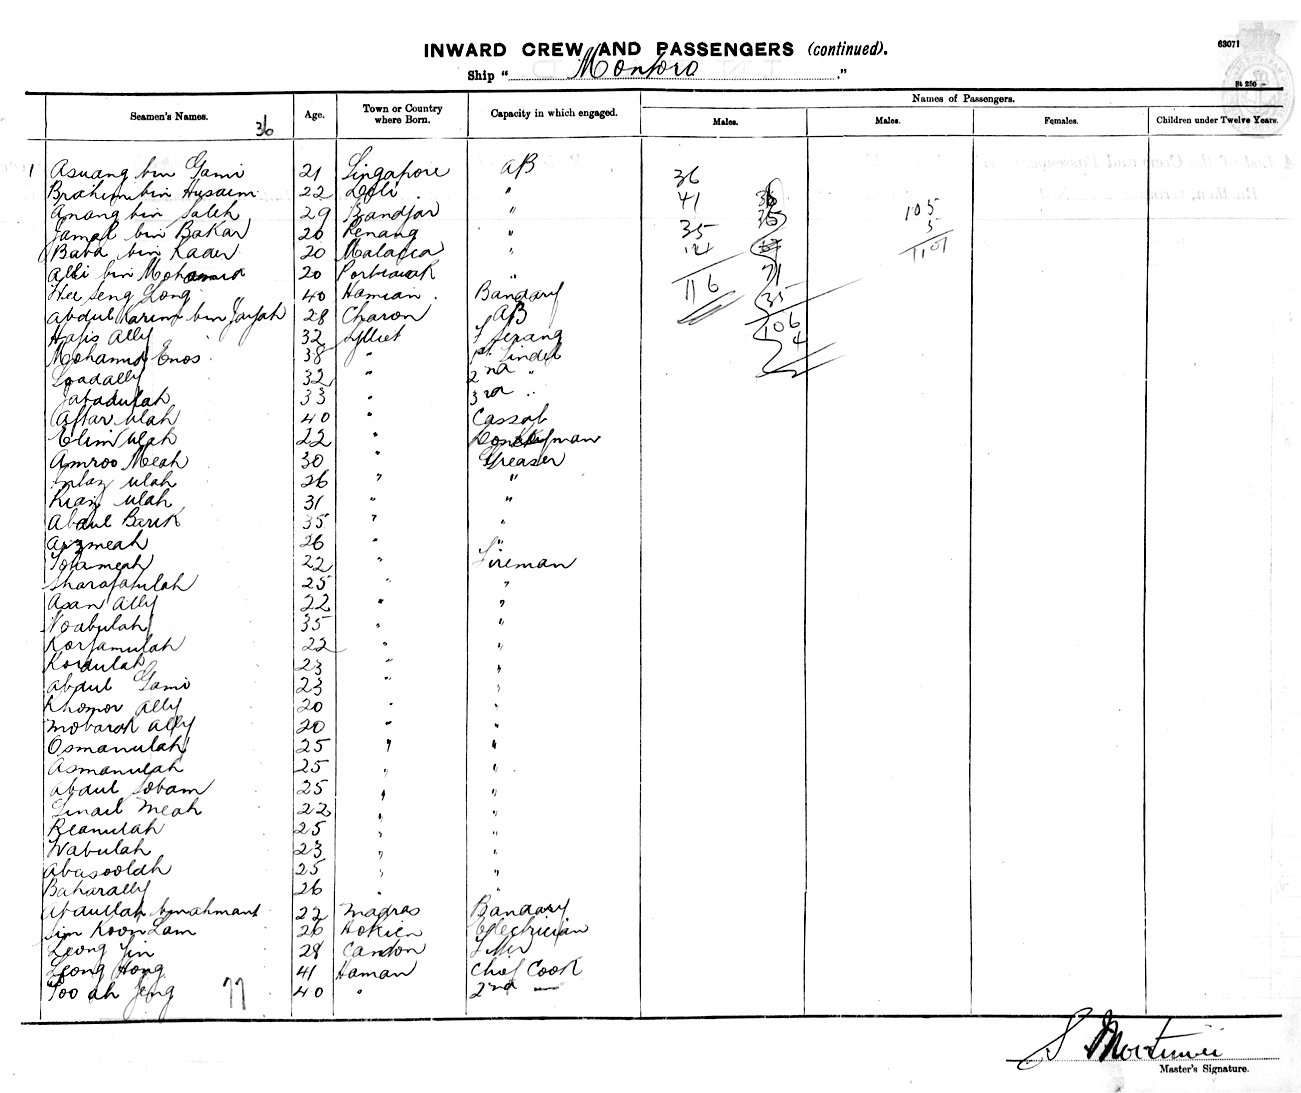 63071
INWARD CREW AND PASSENGERS (continued).
Ship " Montoro ."
St 250
Seamen's Names. 36 Age. Town or Country where Born. Capacity in which engaged. Names of Passengers.
Males. Males. Females. Children under Twelve Years.
1 Asuang bin Gami 21 Singapore AB
Brahim bin Husaim 22 Deli "
Amang bin Saleh 29 Bandjar "
Jamal bin Bakar 20 Penang "
Baba bin Kader 20 Malacca "
Alli bin 20 "
Hee Seng Gong 40 Hamian. Bandary
Abdul Karim bin Yayah 28 Charon AB
Hafis Ally 32 Sylliet F Serang
Mohamed Enos 38 " 1st Tindel
Goadally 32 " 2nd "
Jabadulah 33 " 3rd "
Aftar ulah 40 " Cassab
Elim ulah 22 " Donkeyman
Amroo Meah 30 " Greaser
ulah 26 " "
Riaz ulah 31 " "
Abdul Barik 35 " "
Aizmeah 26 " "
Totameah 22 " Fireman
Sharafatulah 25 " "
Asan Ally 22 " "
Noabulah 35 " "
Korfamulah 22 " "
Koraulah 23 " "
Abdul Gami 23 " "
Khomor Ally 20 " "
Mobarak Ally 20 " "
Osmanulah 25 " "
Asmanulah 25 " "
Abdul Sobam 25 " "
Sinail Meah 22 " "
Reanulah 25 " "
Wabulah 23 " "
Abasoolah 25 " "
Baharally 26 " "
Abdullah 22 Madras Bandary
Sim Koon Lam 26 Hokien Electrician
Leong Yin 28 Canton Fitter
Leong Hong 41 Haman Chief Cook
Too ah Jeng 40 " 2nd —
77
36
41
35
116
71
35
106
4
105
5
110
S Mortimer
Master's Signature.